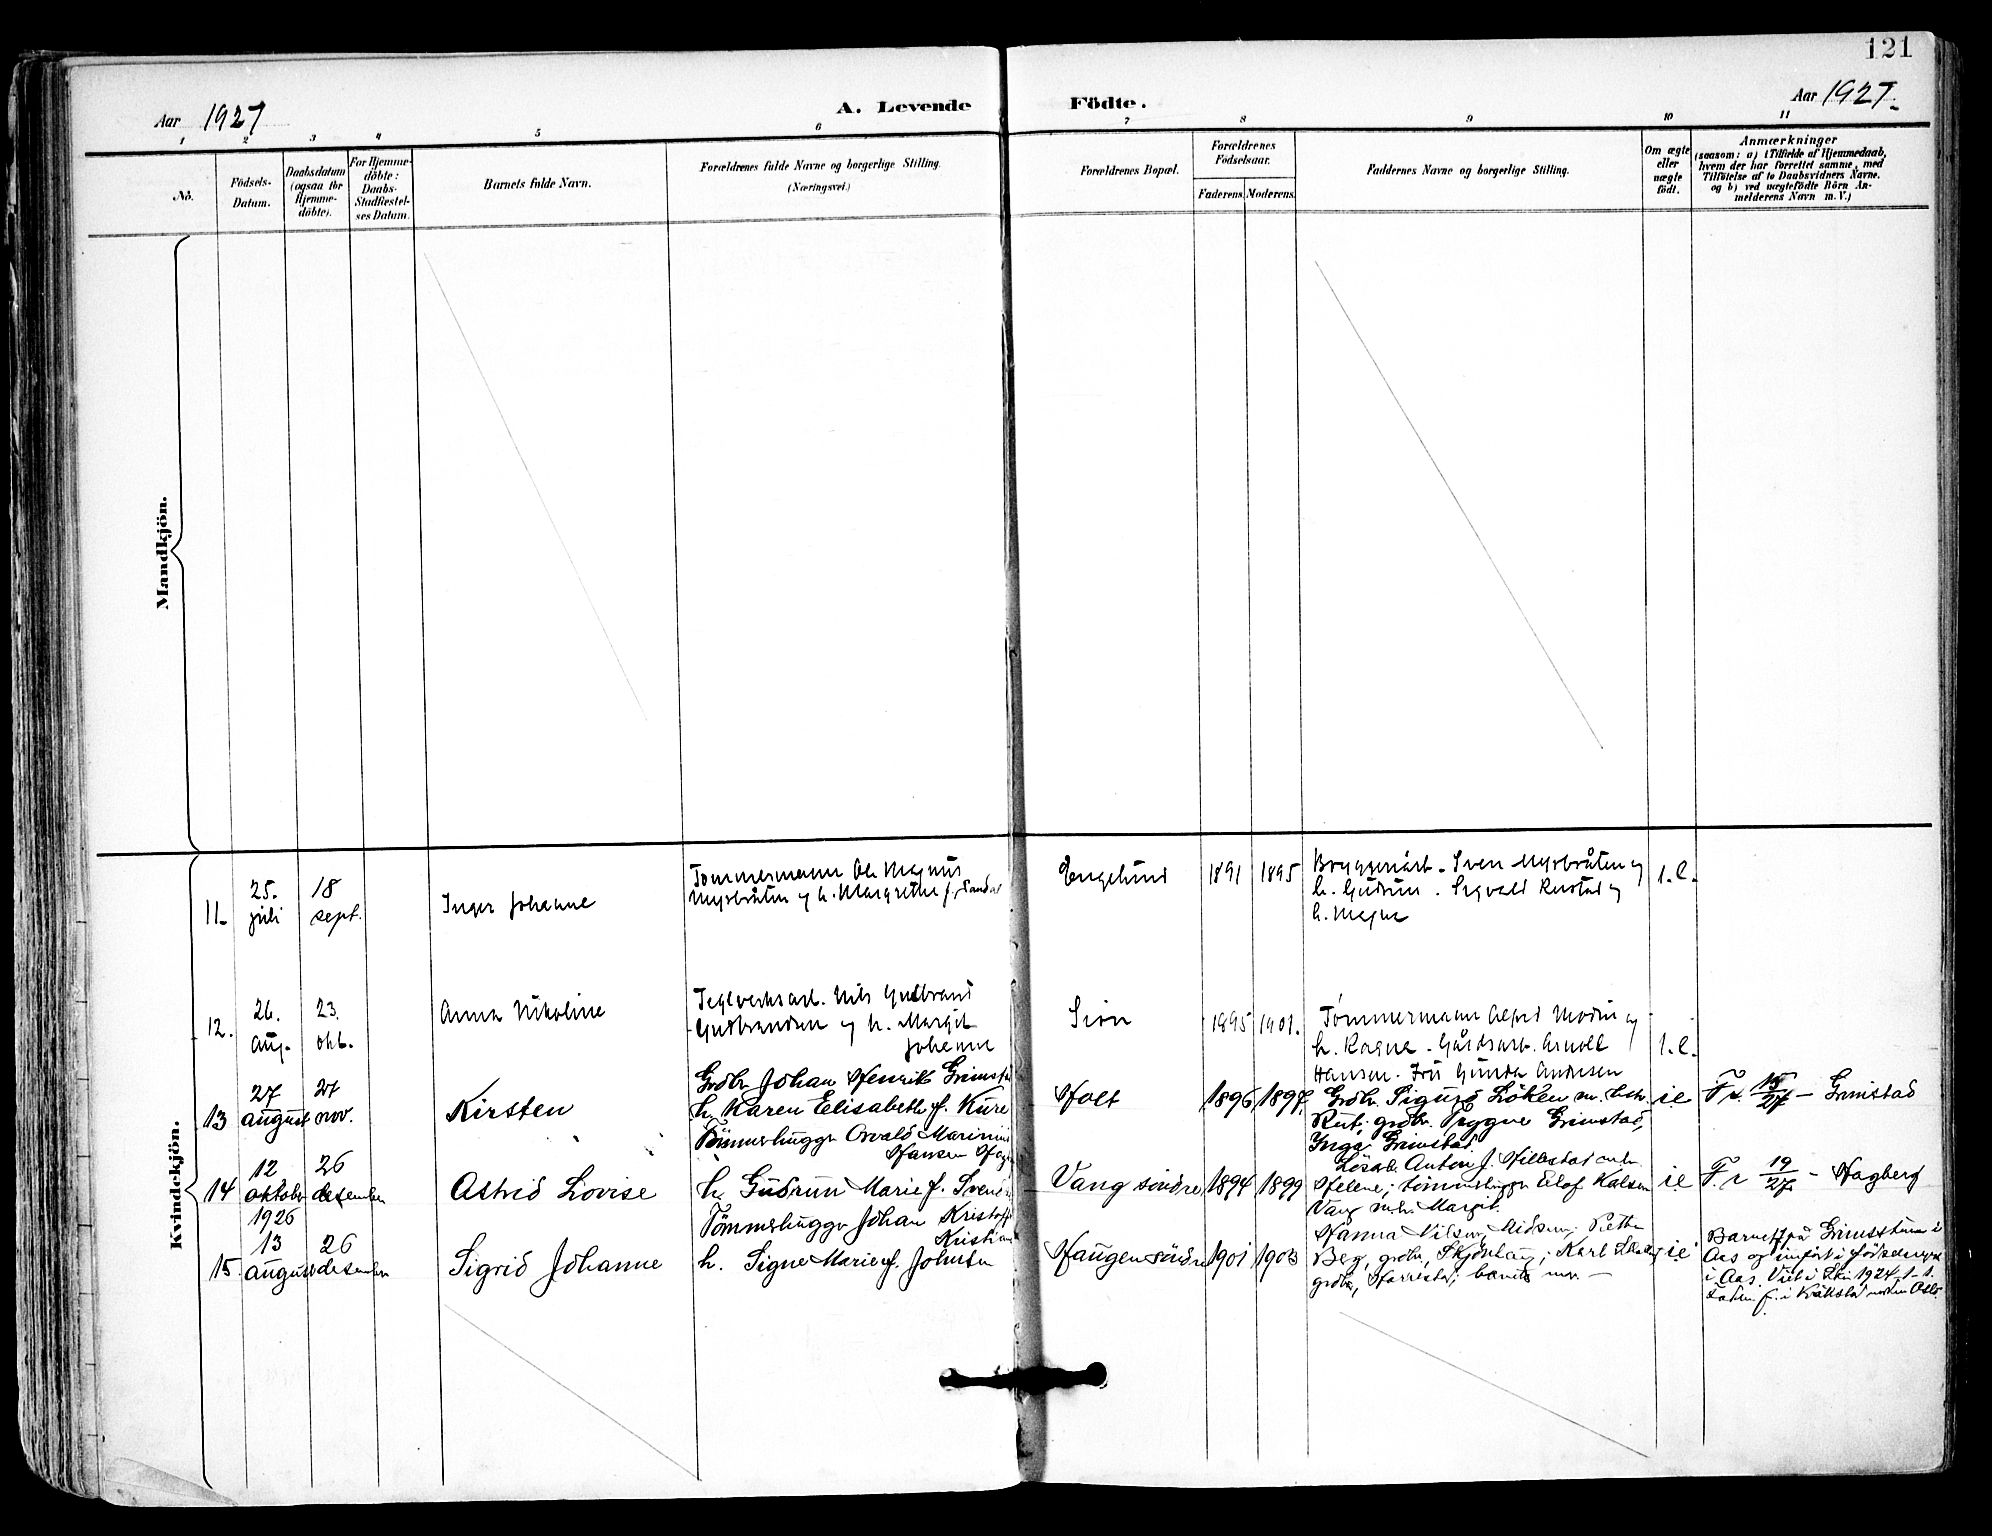 121
Aar 1927
A. Levende Födte.
Aar 1927.
1 2 3 4 5 6 7 8 9 10 11
No.
Födsels-
Datum.
Daabsdatum
(ogsaa for
Hjemme-
döbte).
For Hjemme-
döbte:
Daabs-
Stadfæstel-
ses Datum.
Barnets fulde Navn.
Forældrenes fulde Navne og borgerlige Stilling.
(Næringsvei.)
Forældrenes Bopæl.
Forældrenes
Födselsaar.
Faderens. Moderens.
Faddernes Navne og borgerlige Stilling.
Om ægte
eller
uægte
födt.
Anmærkninger
(saasom: a) i Tilfælde af Hjemmedaab,
hvem der har forrettet samme, med
Tilföielse af to Daabsvidners Navne.
og b) ved uægtefödte Börn An-
melderens Navn m. V.)
Mandkjön.
Kvindekjön.
11.
25.
juli
18
sept.
Inger Johanne
Tømmermann Ole Magnus
Myrbråten og h. Margrethe f.
Engelund
1891
1895
Sven Myrbråten og
h. Gudrun. Sigvald Rustad og
h. Magna
12.
26.
aug.
23.
okt.
Anna Nikoline
Teglverksarb. Nils Gudbrand
Gudbrandsen og h. Margit
Johanne
1895
1901.
Tømmermann Alfred Modin og
h. Ragna. Gårdsarb. Arnold
Hansen. Fru Gunda Andresen
13
27
august
27
nov.
Kirsten
Grdbr. Johan Henrik Grimstad
h. Karen Elisabeth f. Kure
Holt
1896
1897
Grdbr. Sigurd Löken m. hstr.
Rut; grdbr. Trygve Grimstad,
Inga Grimstad
i.e
F. r. 15/27 - Grimstad
14
12
oktober
26
desember
Astrid Lovise
Tömmerhugger Osvald Marinius
Hansen
h. Gudrun Marie f.
Vang söndre
1894
1899
Anton J. Hillestad m.h.
Helene; tömmerhugger Olaf Karlsen
Vang m.h. Margit.
i.e
F. r 19/27 - Hagberg
15.
1926
13
august
26
desember
Sigrid Johanne
Tömmerhugger Johan
h. Signe Marie f. Johnsen
Haugen söndre
1901
1903
Hanna Nilsen,
Berg, grdbr., Skjönhaug; Karl
grdbr.,
i.e
Barnet f. på
Aas og innfört i födselsreg.
i Aas. Viet i Ski 1924 1-1.
Faden f. i Kråkstad Oslo.